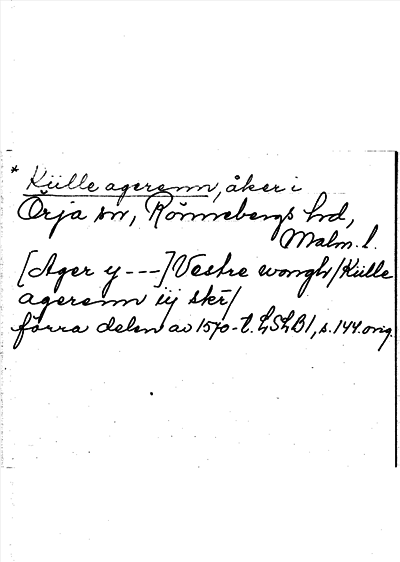 * Külle agerenn, åker i
Örja sn, Rönnebergs hd,
Malm. l.
[Ager y - - -] Vestre wongh / Külle
agerenn iij skr̄ /
förra delen av 1570-t. LSLB1, s. 144. orig.